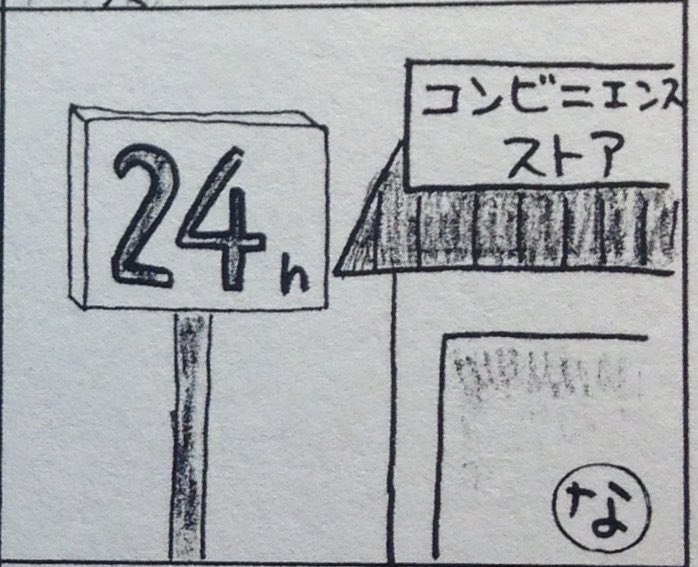 24h
コンビニエンス
ストア
な